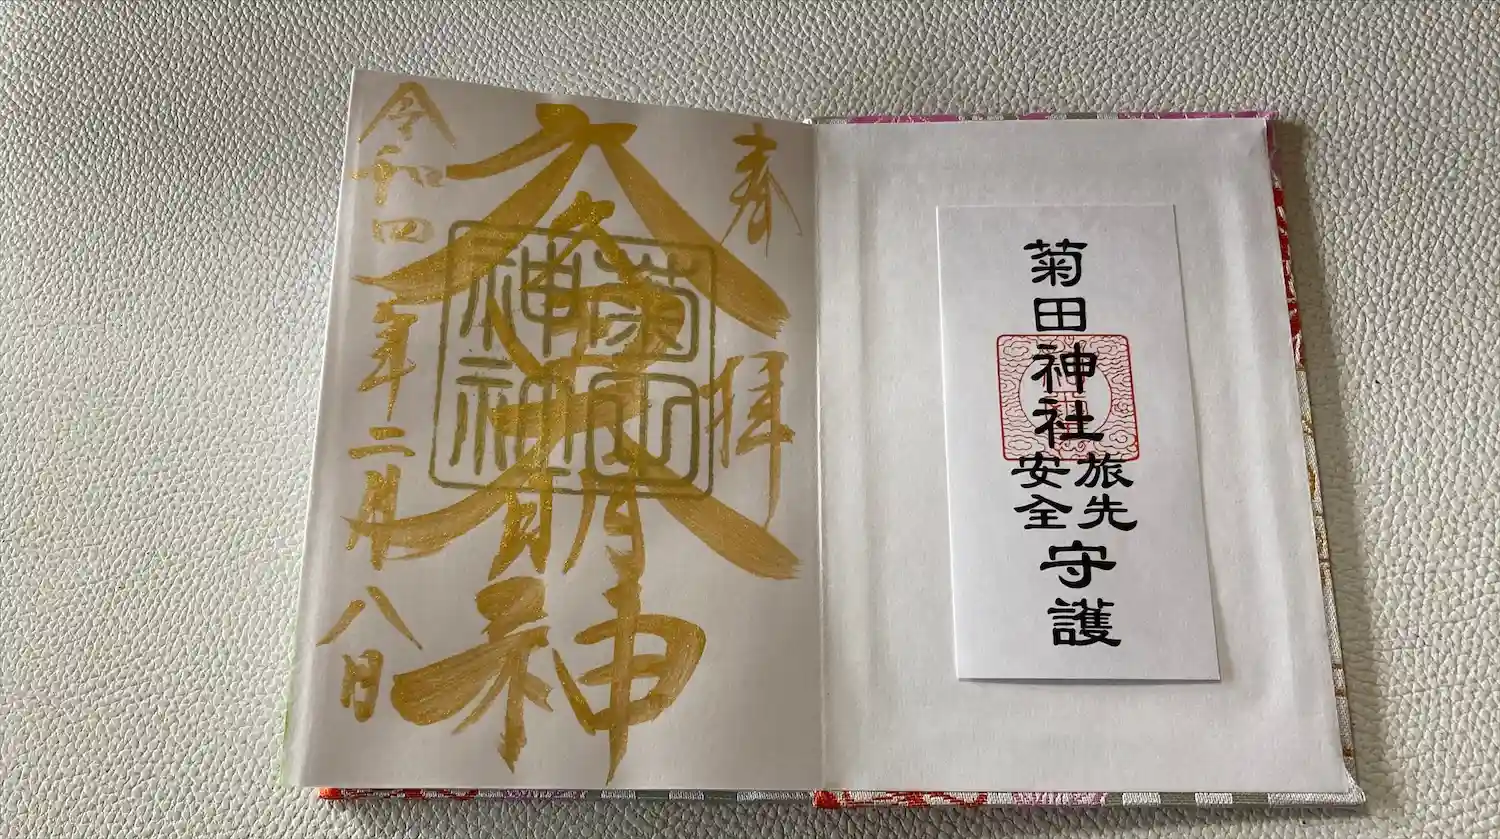 菊田神社
旅先
安全
守護
奉拝
大明神
令和四年二月八日